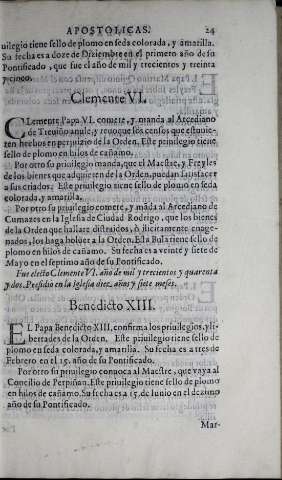 APOSTOLICAS. 24
uilegio tiene sello de plomo en seda colorada, y amarilla.
Su fecha es a doze de Diziembre en el primero año de su
Pontificado, que fue el año de mil y trecientos y treinta
y cinco.
Clemente VI.
CLemente Papa VI. comete, y manda al Arcediano
de Treuiño anule, y reuoque los censos que estuuie-
ren hechos en perjuizio de la Orden. Este priuilegio tiene
sello de plomo en hilos de cañamo.
Por otro su priuilegio manda, que el Maestre, y Freyles
de los bienes que adquieren de la Orden, puedan satisfacer
a sus criados. Este priuilegio tiene sello de plomo en seda
colorada, y amarilla.
Por otro su priuilegio comete, y mãda al Arcediano de
Camazes en la Iglesia de Ciudad Rodrigo, que los bienes
de la Orden que hallare distraidos, ò ilicitamente enage-
nados, los haga boluer a la Orden. Esta Bula tiene sello de
plomo en hilos de cañamo. Su fecha es a veinte y siete de
Mayo en el septimo año de su Pontificado.
Fue electo Clemente VI. año de mil y trecientos y quarenta
y dos. Presidio en la Iglesia diez años y siete meses.
Benedicto XIII.
EL Papa Benedicto XIII, confirma los priuilegios, y li-
bertades de la Orden. Este priuilegio tiene sello de
plomo en seda colorada, y amarilla. Su fecha es a tres de
Febrero en el 15. año de su Pontificado.
Por otro su priuilegio conuoca al Maestre, que vaya al
Concilio de Perpiñan. Este priuilegio tiene sello de plomo
en hilos de cañamo. Su fecha es a 15. de Iunio en el dezimo
año de su Pontificado.
Mar-